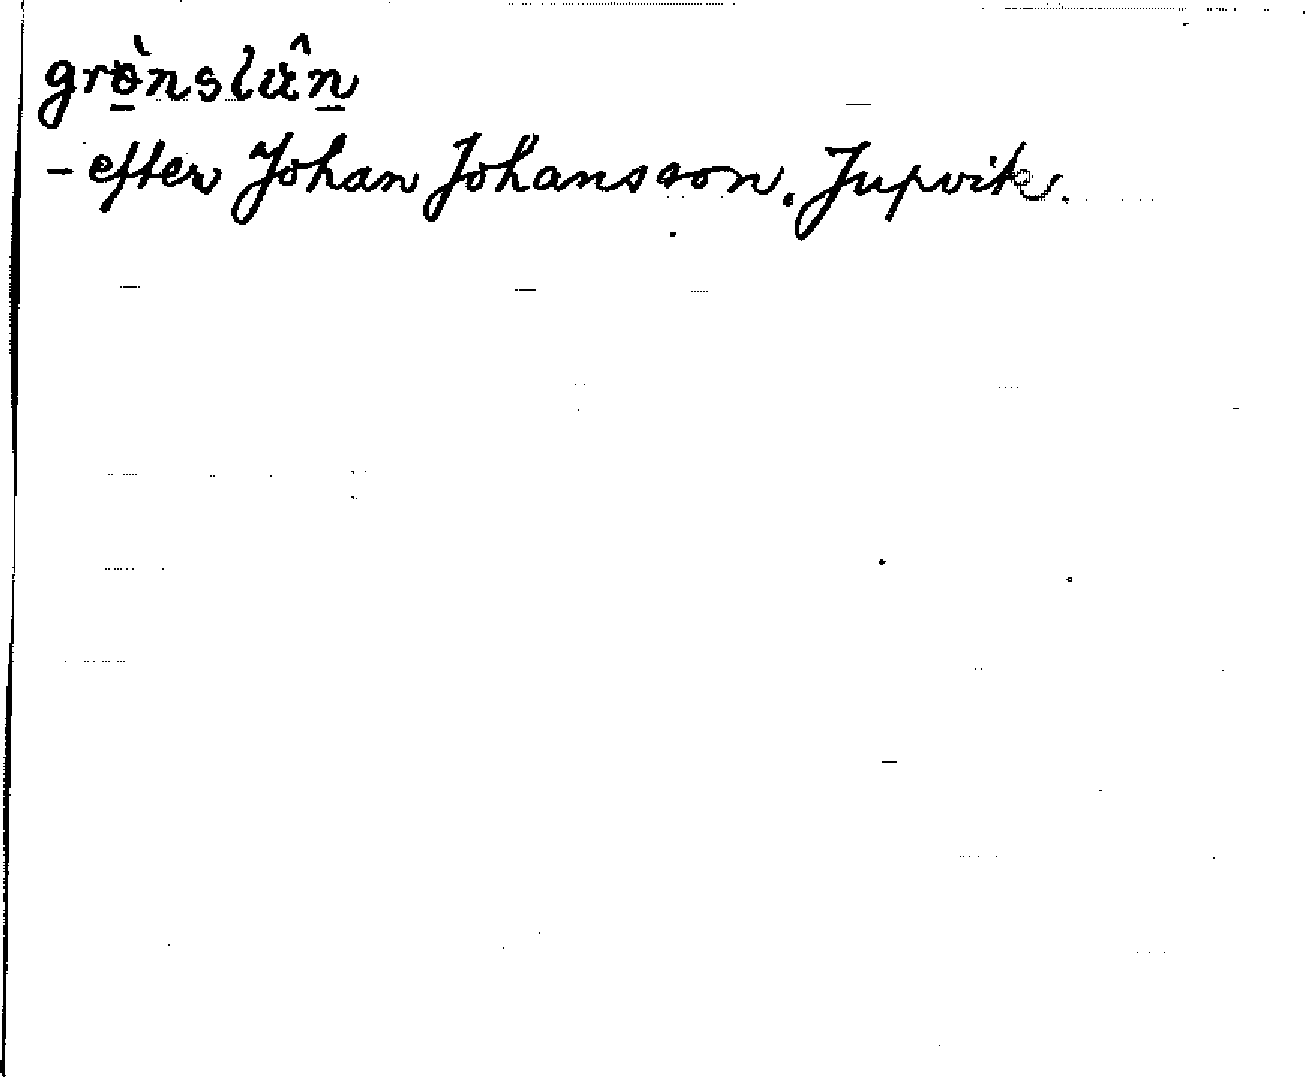 grö̀nslân
- efter Johan Johansson, Jupvik.